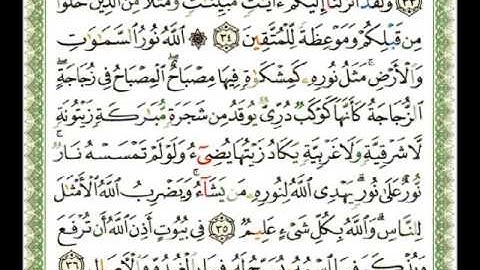 ﴿٣٣﴾ وَلَقَدْ أَنزَلْنَا إِلَيْكُمْ ءَايَٰتٍ مُّبَيِّنَٰتٍ وَمَثَلًا مِّنَ الَّذِينَ خَلَوْا
مِن قَبْلِكُمْ وَمَوْعِظَةً لِّلْمُتَّقِينَ ﴿٣٤﴾ ۞ اللَّهُ نُورُ السَّمَٰوَٰتِ
وَالْأَرْضِ ۚ مَثَلُ نُورِهِ كَمِشْكَوٰةٍ فِيهَا مِصْبَاحٌ ۖ الْمِصْبَاحُ فِي زُجَاجَةٍ ۖ
الزُّجَاجَةُ كَأَنَّهَا كَوْكَبٌ دُرِّيٌّ يُوقَدُ مِن شَجَرَةٍ مُّبَٰرَكَةٍ زَيْتُونَةٍ
لَّا شَرْقِيَّةٍ وَلَا غَرْبِيَّةٍ يَكَادُ زَيْتُهَا يُضِيءُ وَلَوْ لَمْ تَمْسَسْهُ نَارٌ ۚ
نُّورٌ عَلَىٰ نُورٍ ۗ يَهْدِي اللَّهُ لِنُورِهِ مَن يَشَاءُ ۚ وَيَضْرِبُ اللَّهُ الْأَمْثَٰلَ
لِلنَّاسِ ۗ وَاللَّهُ بِكُلِّ شَيْءٍ عَلِيمٌ ﴿٣٥﴾ فِي بُيُوتٍ أَذِنَ اللَّهُ أَن تُرْفَعَ
وَيُذْكَرَ فِيهَا اسْمُهُ يُسَبِّحُ لَهُ فِيهَا بِالْغُدُوِّ وَالْأَصَالِ ﴿٣٦﴾